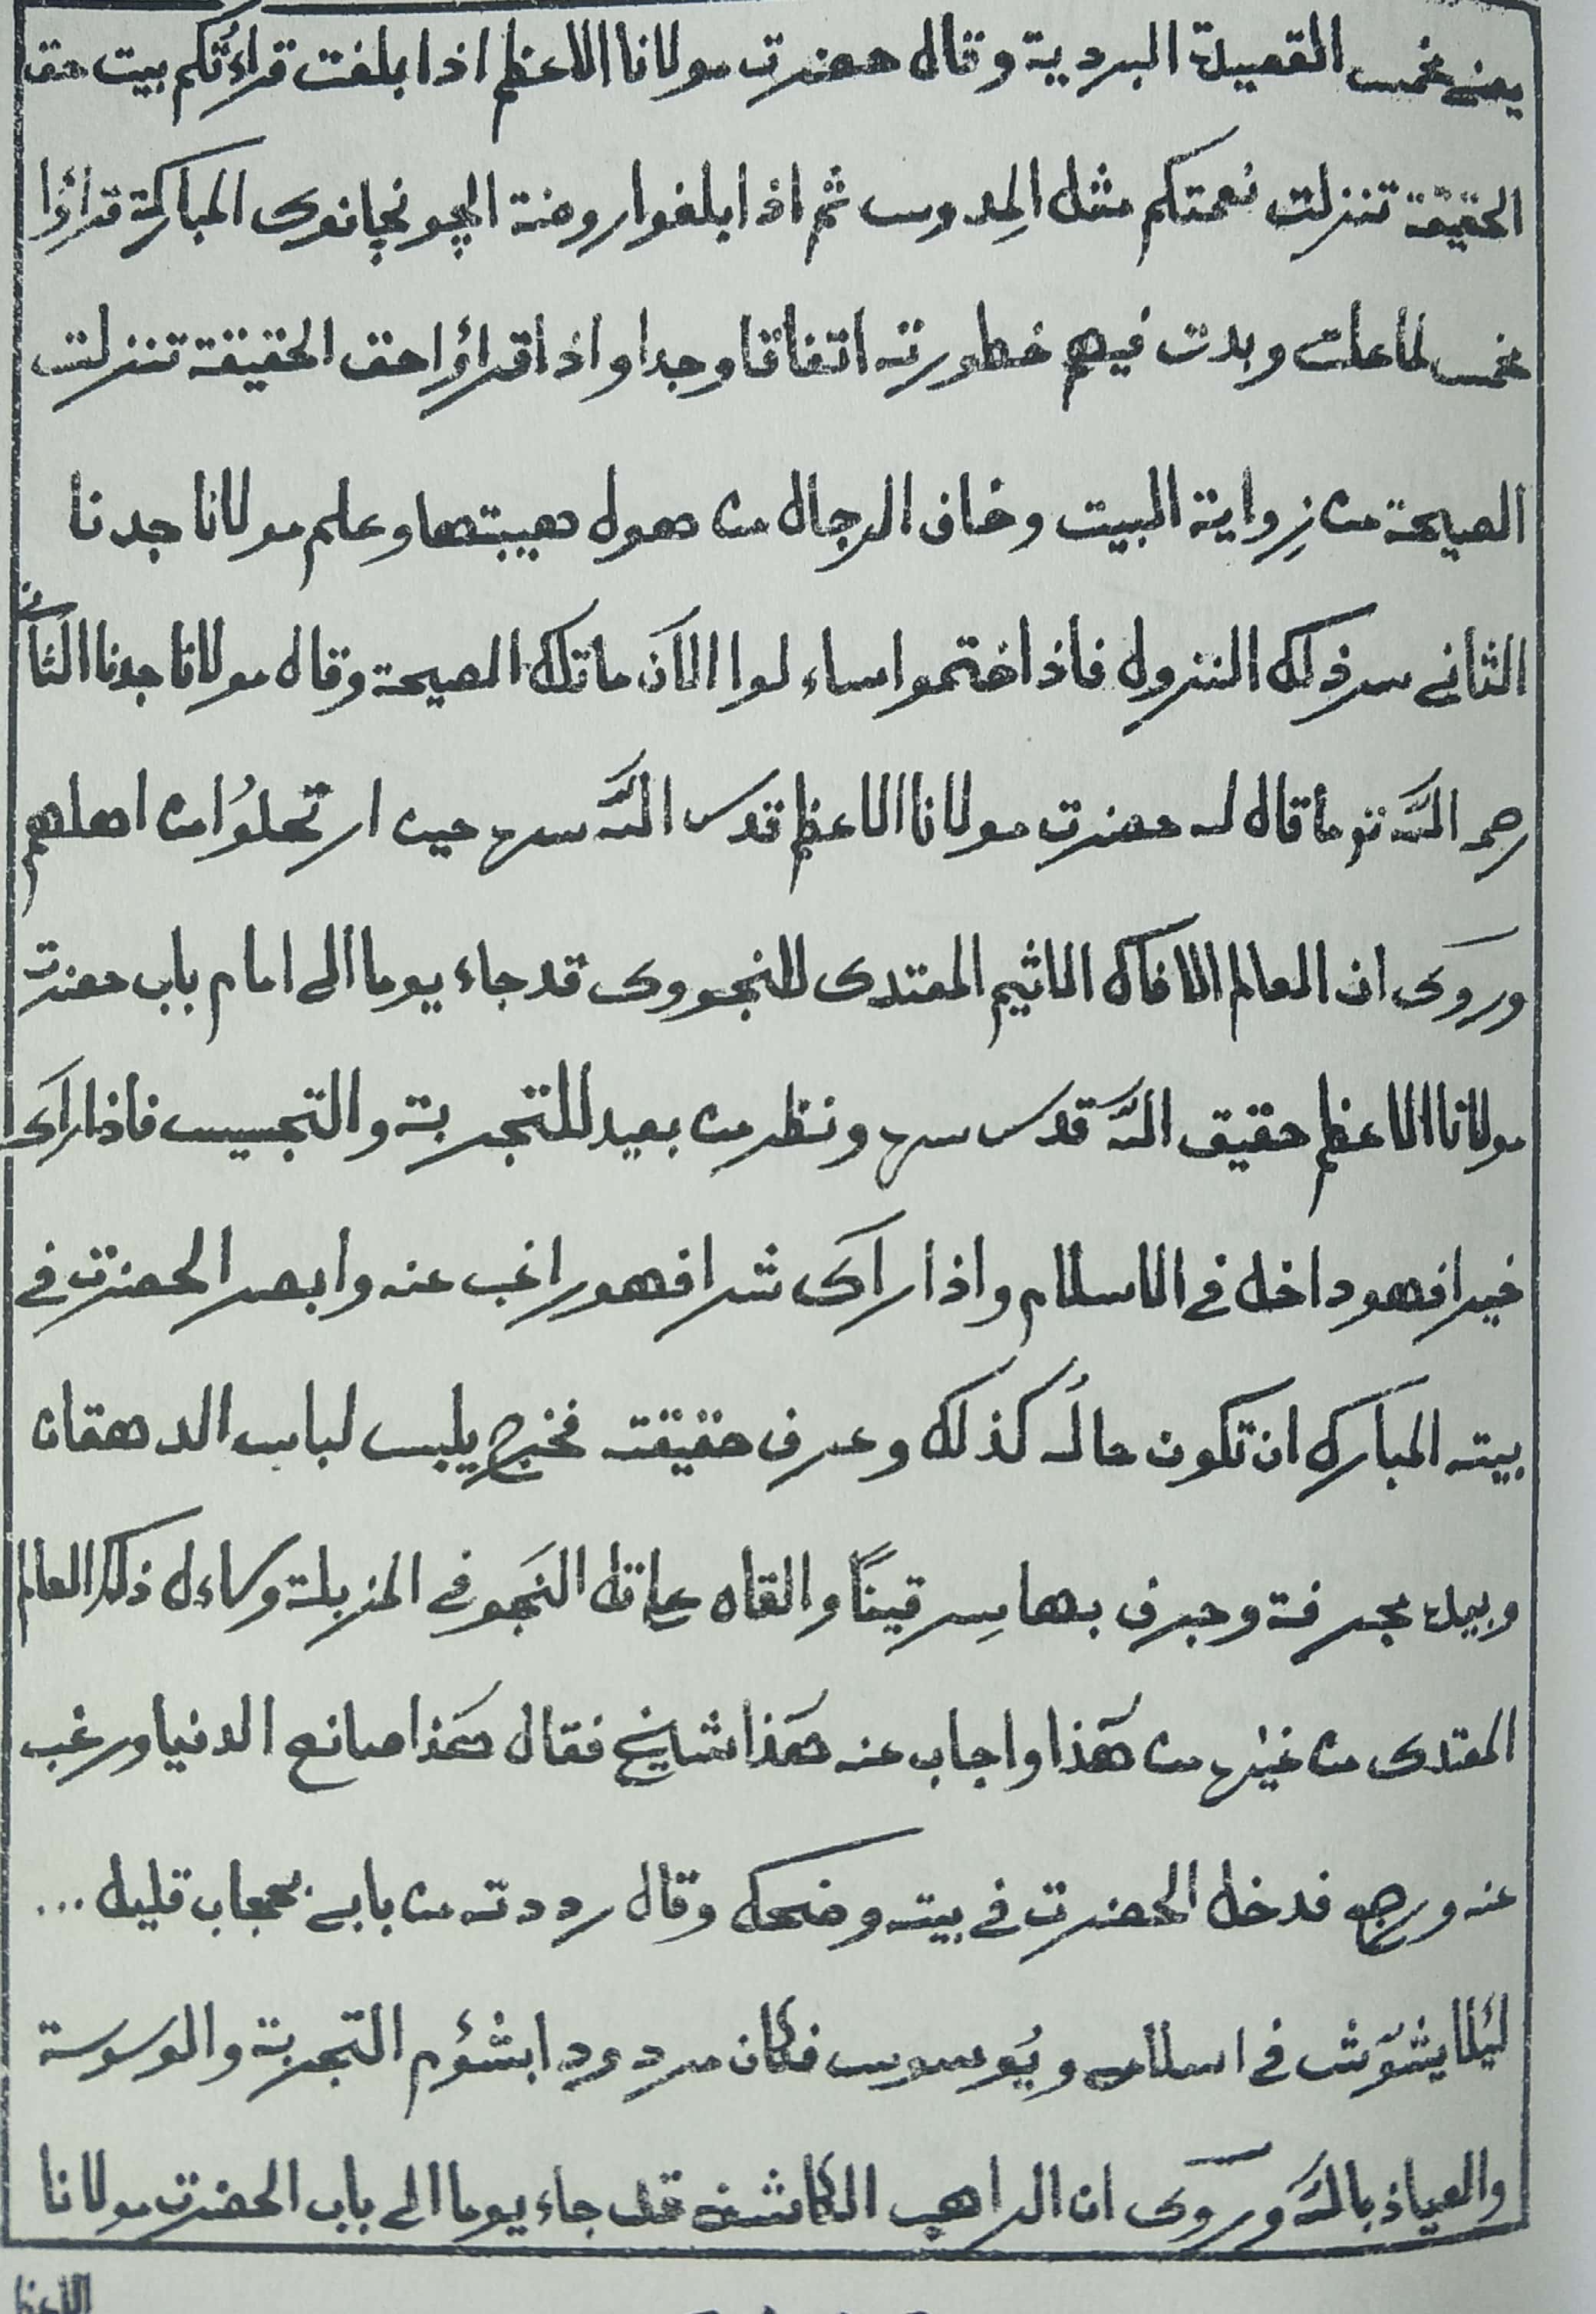 يعنے مخمس القصيدة البردية وقال حضرت مولانا الاعظم اذا بلغت قراءتُكم بيت حق
الحقيقة تنزلت نعمتكم مثل المدوس ثم اذا بلغوا روضة الچونچانوى المباركة قراؤا
مخمس لما علت وبدت فيهم خطورته اتفاقا وجدا واذا قراؤا حق الحقيقة تنزلت
الصيحة من زِواية البيت وخاف الرجال من هول هيبتها وعلم مولانا جدنا
الثانے سر ذلك النزول فاذا ختموا ساء لوا الاٰن ما تلك الصيحة وقال مولانا جدنا الثانے
رحمه اللّه تو ما قال له حضرت مولانا الاعظم قدس اللّه سره حين ارتحلوُا من اهلهم
وروىٰ ان العالم الافاك الاثيم المقتدى للنجووى قد جاء يوما الى امام باب حضرت
مولانا الاعظم حقيق اللّه قدس سره ونظر من بعيد للتجربة والتجسيس فاذا راٰى
خيرا فهو داخل فے الاسلام واذا راٰى شرا فهو راغب عنه وابصر الحضرت فے
بيته المبارك ان تكون حالُه كذلك وعرف حقيقته فخرج يلبس لباب الدهقان
وبيده مجرفة وجرف بها سِرقينًا والقاه علٰے تل النَجو فے المزبلة وساءل ذلك العالم
المقتدى من غيره من هٰذا واجاب عنه هٰذا شايخ فقال هٰكذا صانع الدنيا ورغب
عنه ورجع فدخل الحضرت فے بيته وضحك وقال رددته من بابے بحجاب قليل ...
لِئَلا يشوّش فے اسلامے ويُوسوس فكان مردودا بشؤم التجربة والوسوسة
والعياذ باللّه وروىٰ ان الراهب الكاشف قد جاء يوما الى باب الحضرت مولانا
الاعظم